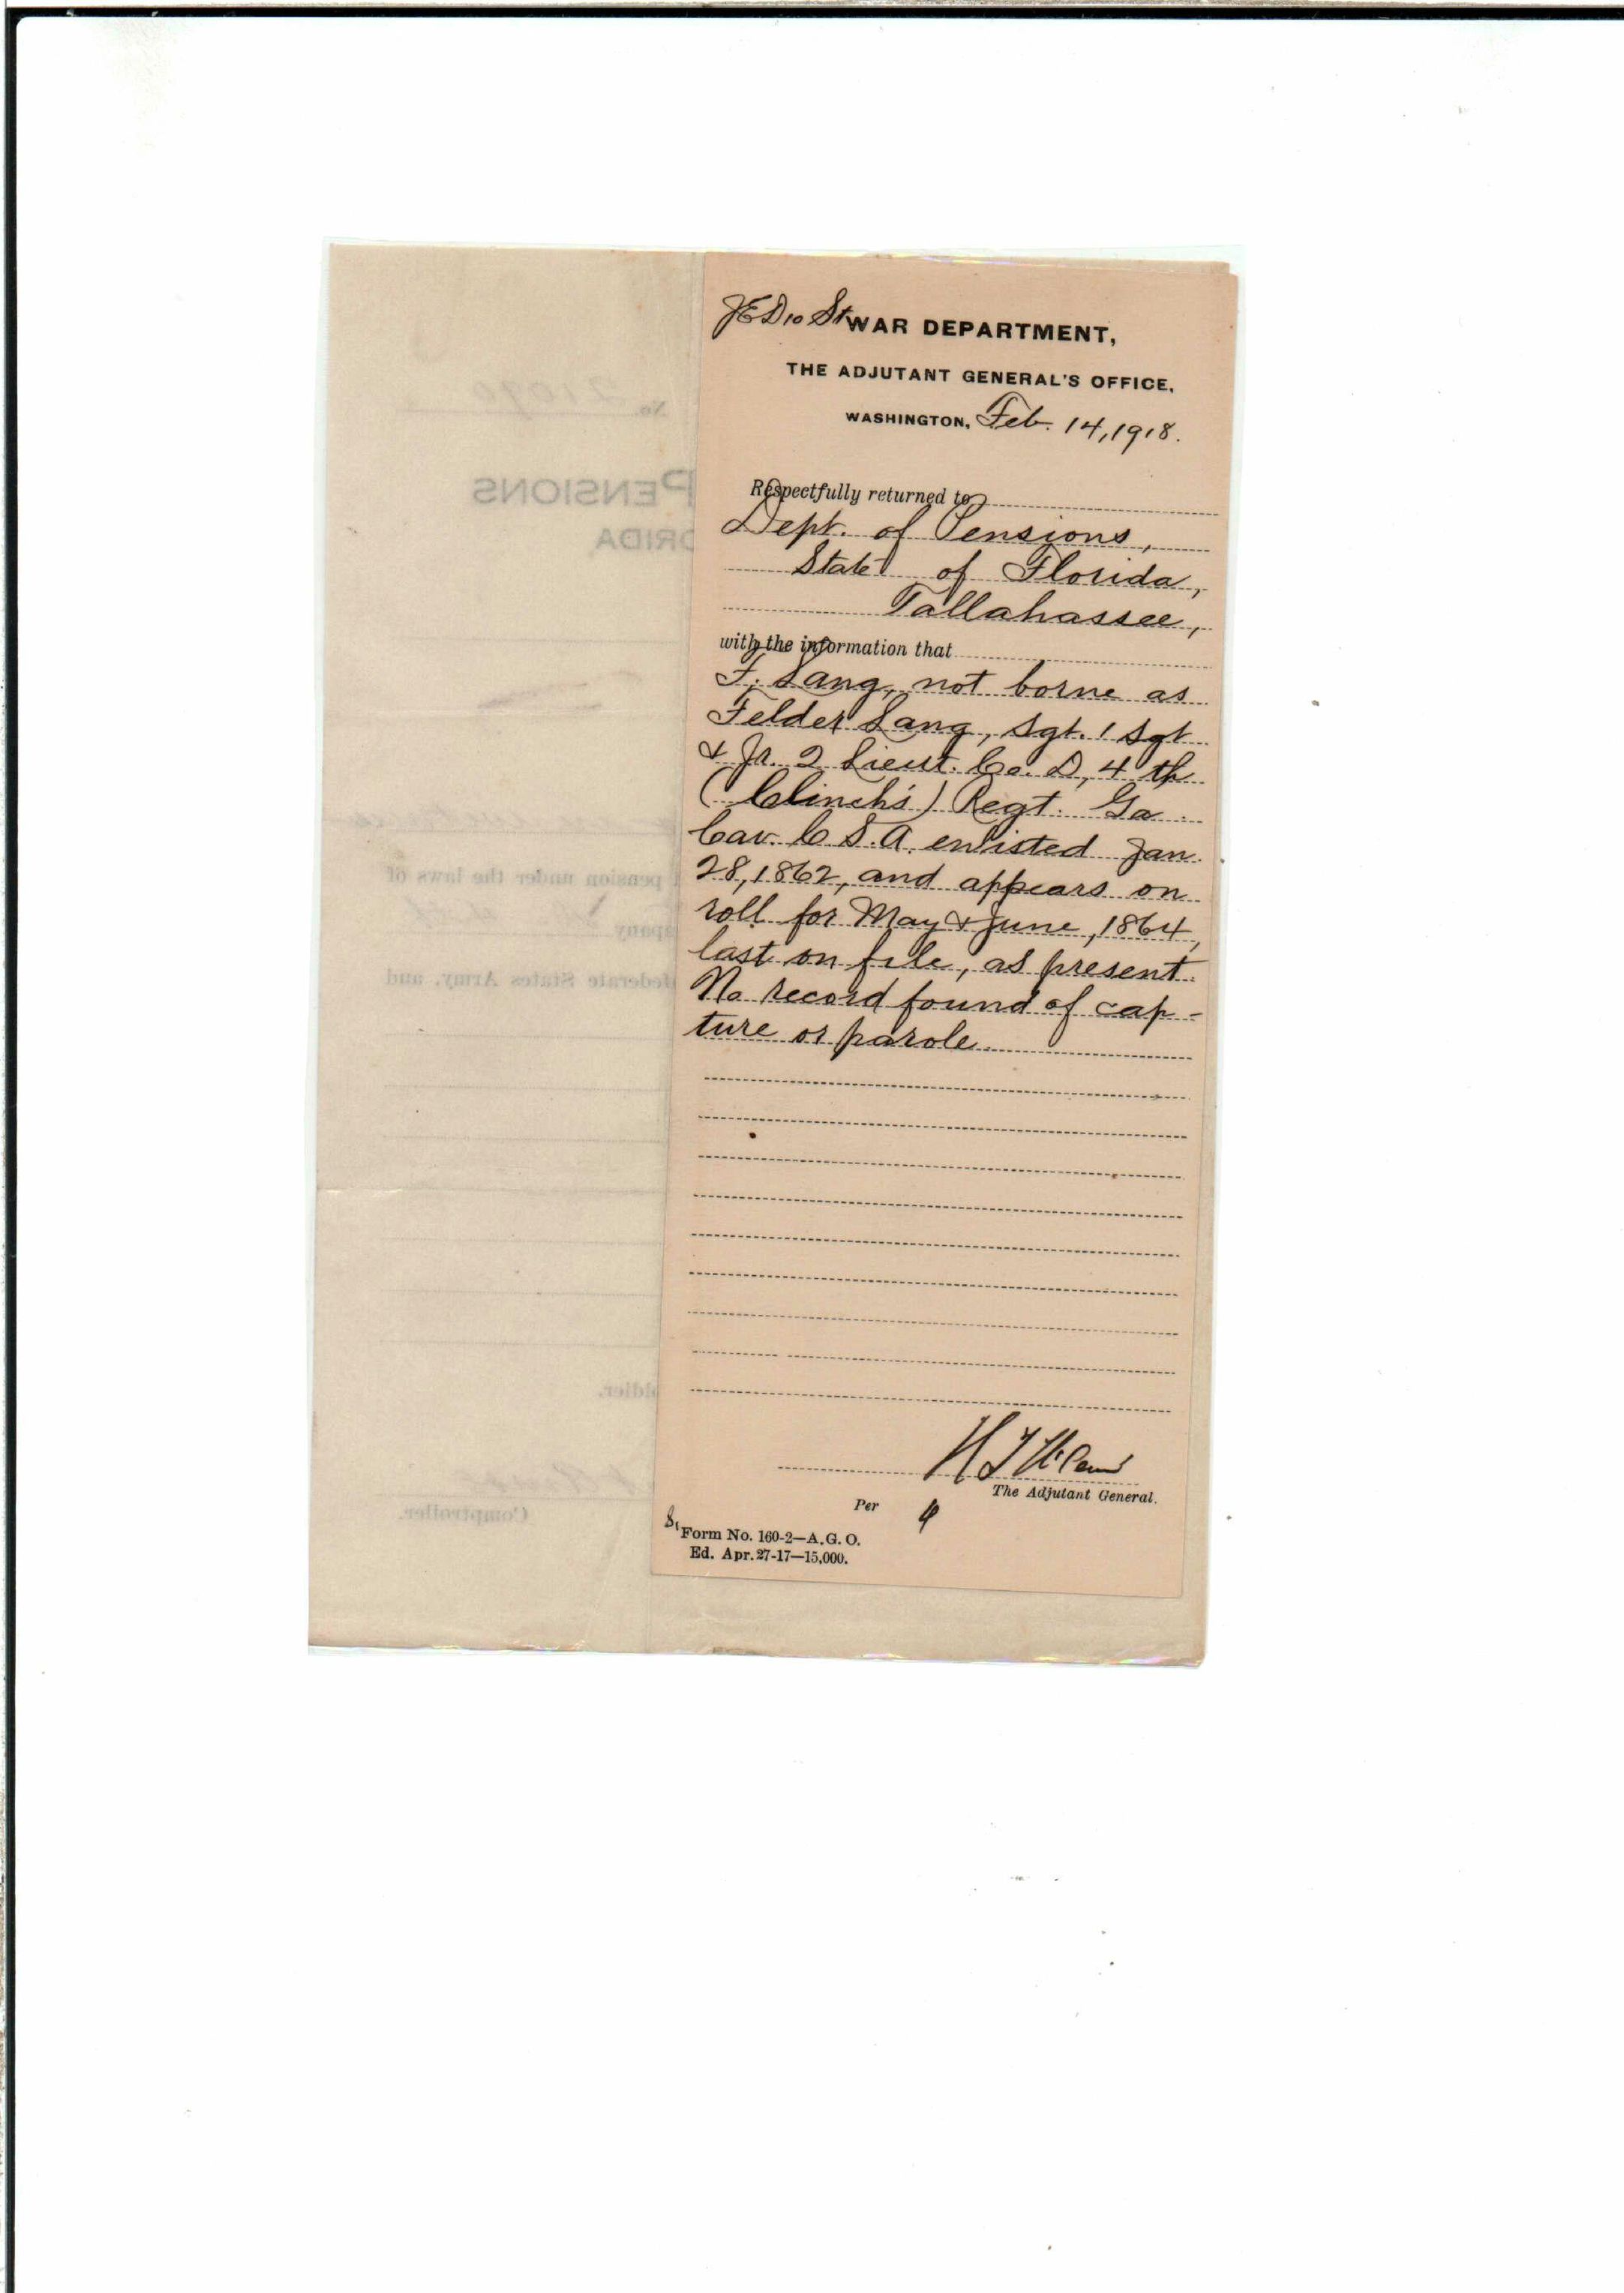 JED 10 St
WAR DEPARTMENT,
THE ADJUTANT GENERAL'S OFFICE,
WASHINGTON, Feb. 14, 1918.
Respectfully returned to
Dept. of Pensions,
State of Florida,
Tallahassee,
with the information that
F. Lang, not borne as
Felder Lang, Sgt. 1 Sgt
& Jr. 2 Lieut. Co. D, 4 th
(Clinch's) Regt. Ga.
Cav. C S.A. enlisted Jan.
28, 1862, and appears on
roll for May & June, 1864,
last on file, as present.
No record found of cap-
ture or parole.
The Adjutant General.
Per
Form No. 160-2—A.G.O.
Ed. Apr. 27-17—15,000.
No. 21090
PENSIONS
ORIDA
pension under the laws of
pany
federate States Army, and
ldier.
Comptroller.